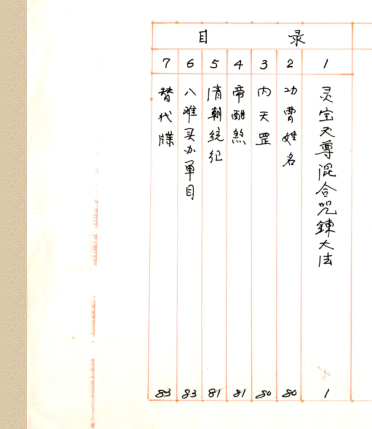 目录
1 灵宝天尊混合咒鍊大法 1
2 功曹姓名 80
3 内天罡 80
4 帝酬絲 81
5 清朝統纪 81
6 八难买办單目 83
7 替代牒 83